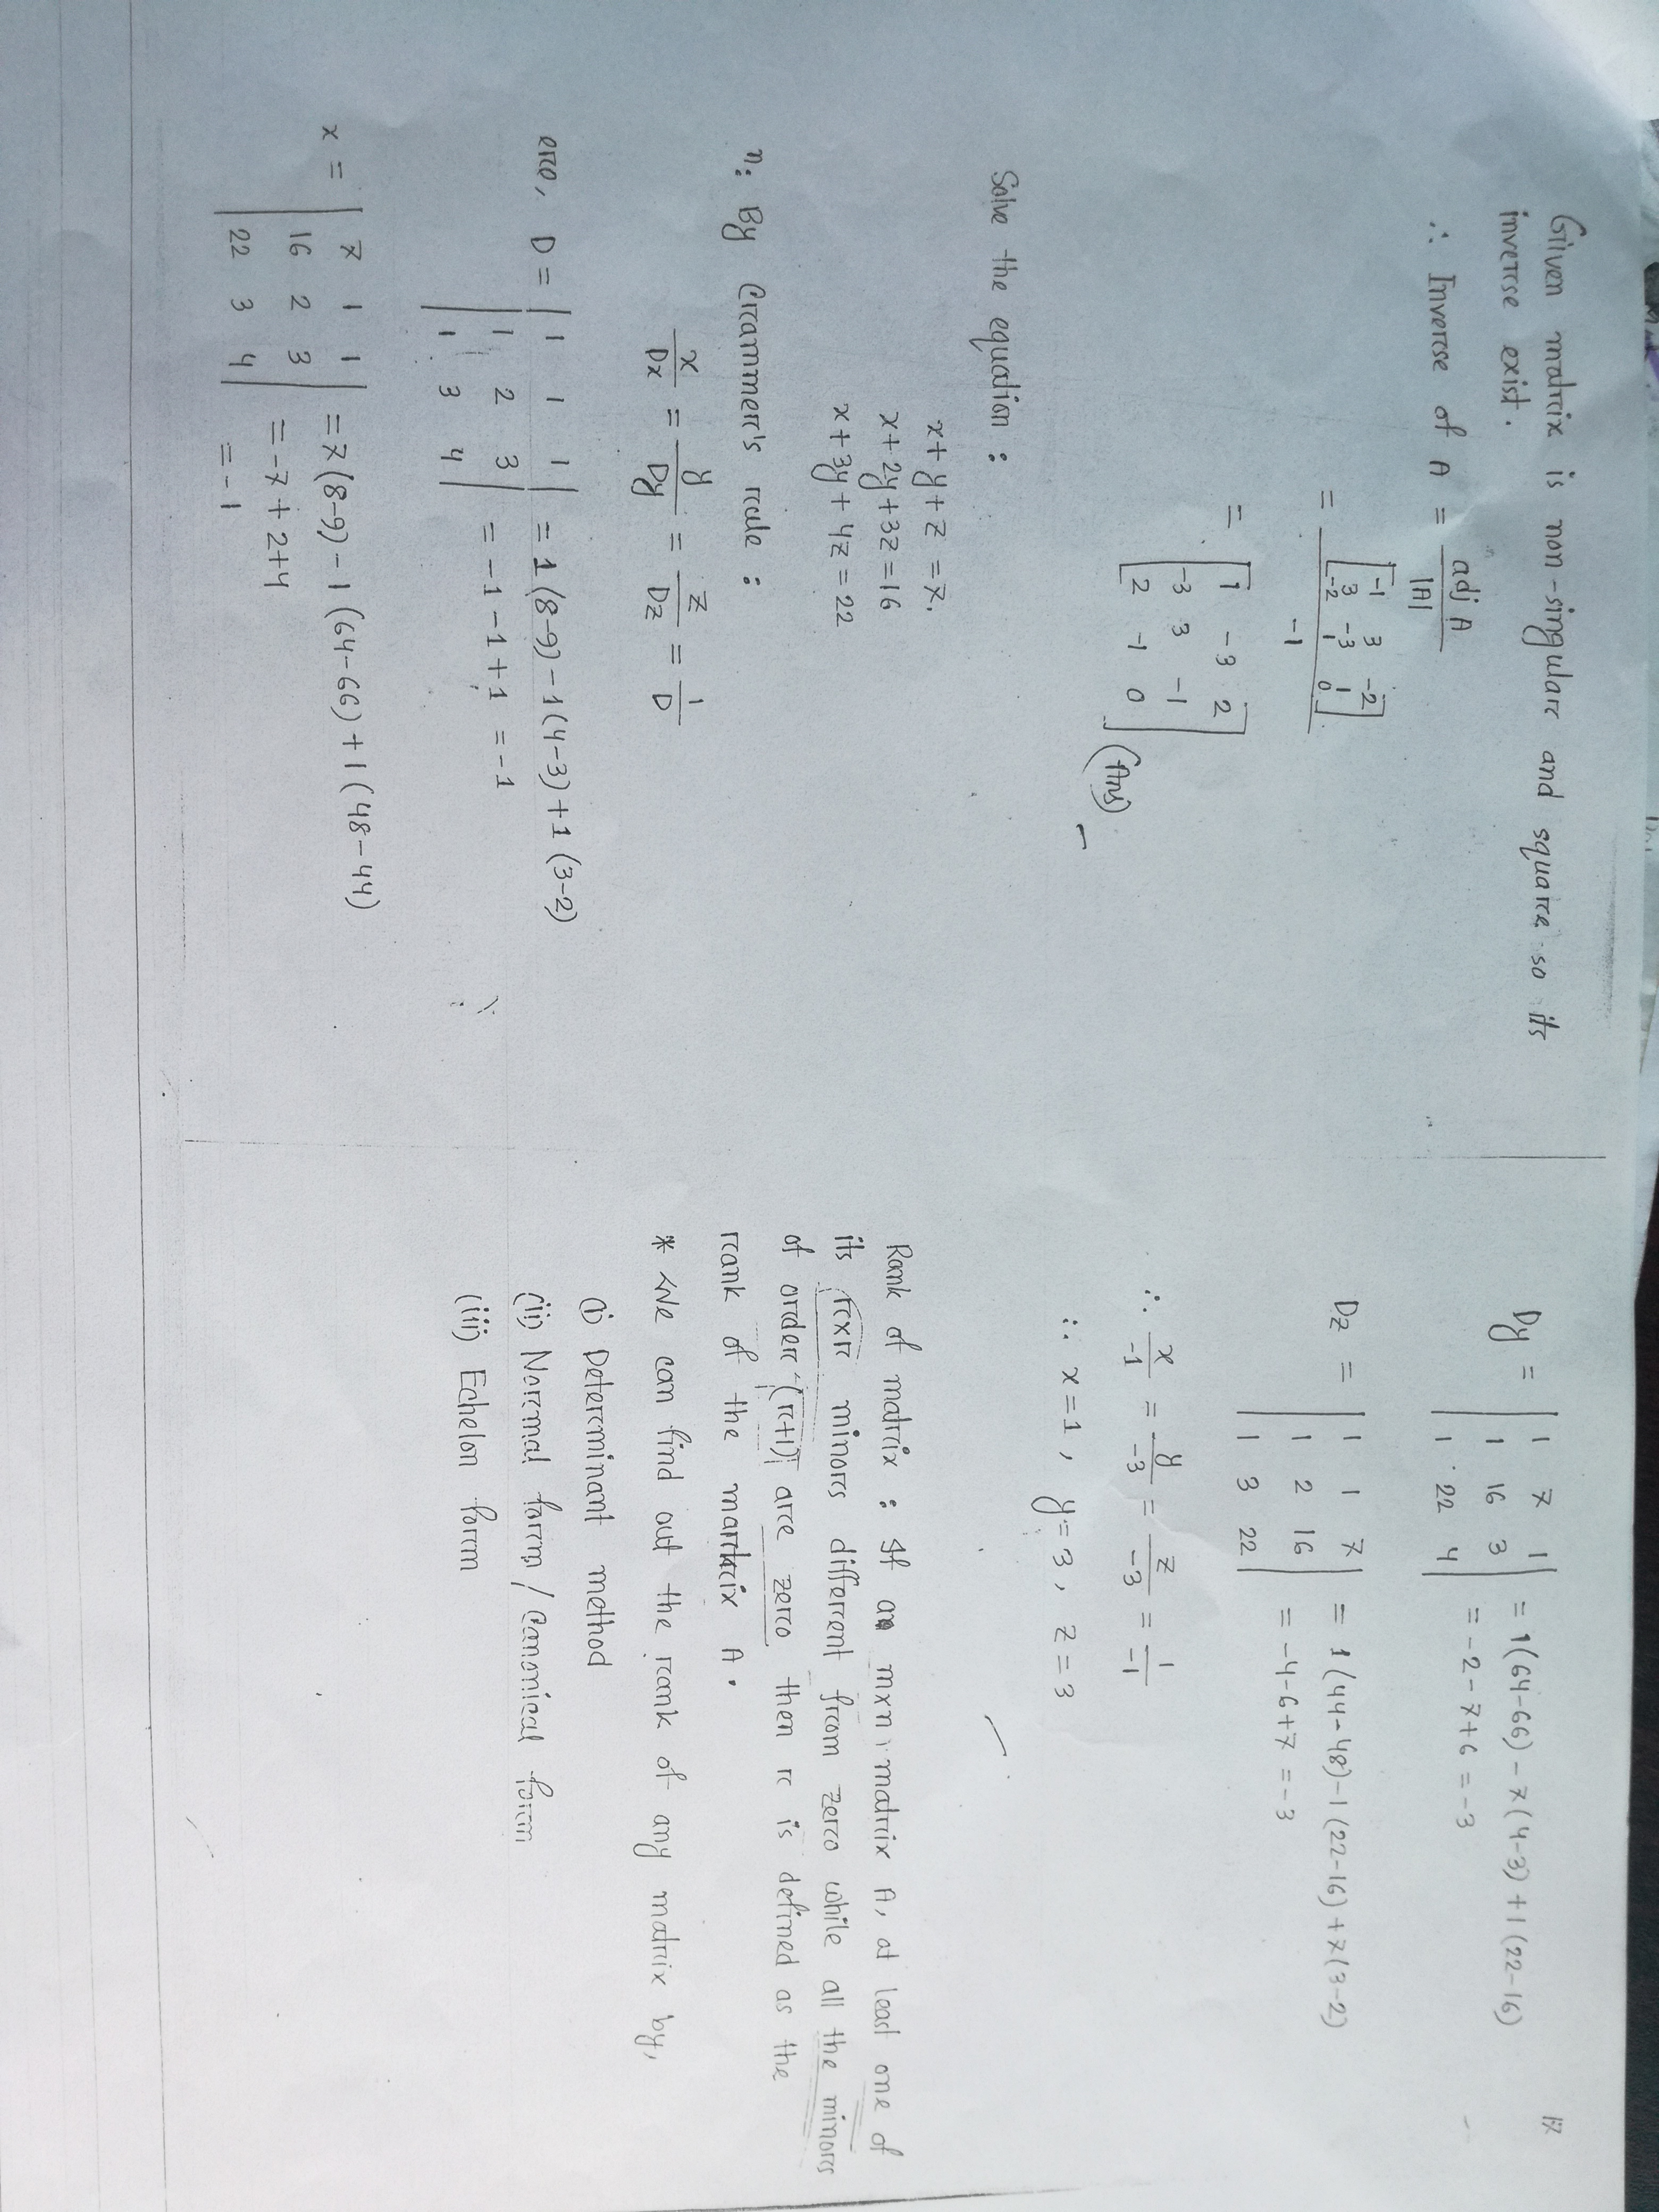 Given matrix is non-singular and square so its
inverse exist.
∴ Inverse of A = adj A / |A|
= [-1 3 -2
3 -3 1
-2 1 0] / -1
= [1 -3 2
-3 3 -1
2 -1 0] (Ans)
Solve the equation :
x+y+z = 7.
x+2y+3z = 16
x+3y+4z = 22
n: By Crammer's rule :
x/Dx = y/Dy = z/Dz = 1/D
ere, D = |1 1 1| = 1(8-9)-1(4-3)+1(3-2)
|1 2 3| = -1-1+1 = -1
|1 3 4|
x = |7 1 1| = 7(8-9)-1(64-66)+1(48-44)
|16 2 3| = -7+2+4
|22 3 4| = -1
17
Dy = |1 7 1| = 1(64-66)-7(4-3)+1(22-16)
|1 16 3| = -2-7+6 = -3
|1 22 4|
Dz = |1 1 7| = 1(44-48)-1(22-16)+7(3-2)
|1 2 16| = -4-6+7 = -3
|1 3 22|
∴ x/-1 = y/-3 = z/-3 = 1/-1
∴ x=1, y=3, z=3
Rank of matrix : If an m×n matrix A, at least one of
its r×r minors different from zero while all the minors
of order (r+1) are zero then r is defined as the
rank of the martrix A.
* We can find out the rank of any matrix by,
(i) Determinant method
(ii) Normal form / Canonical form
(iii) Echelon form